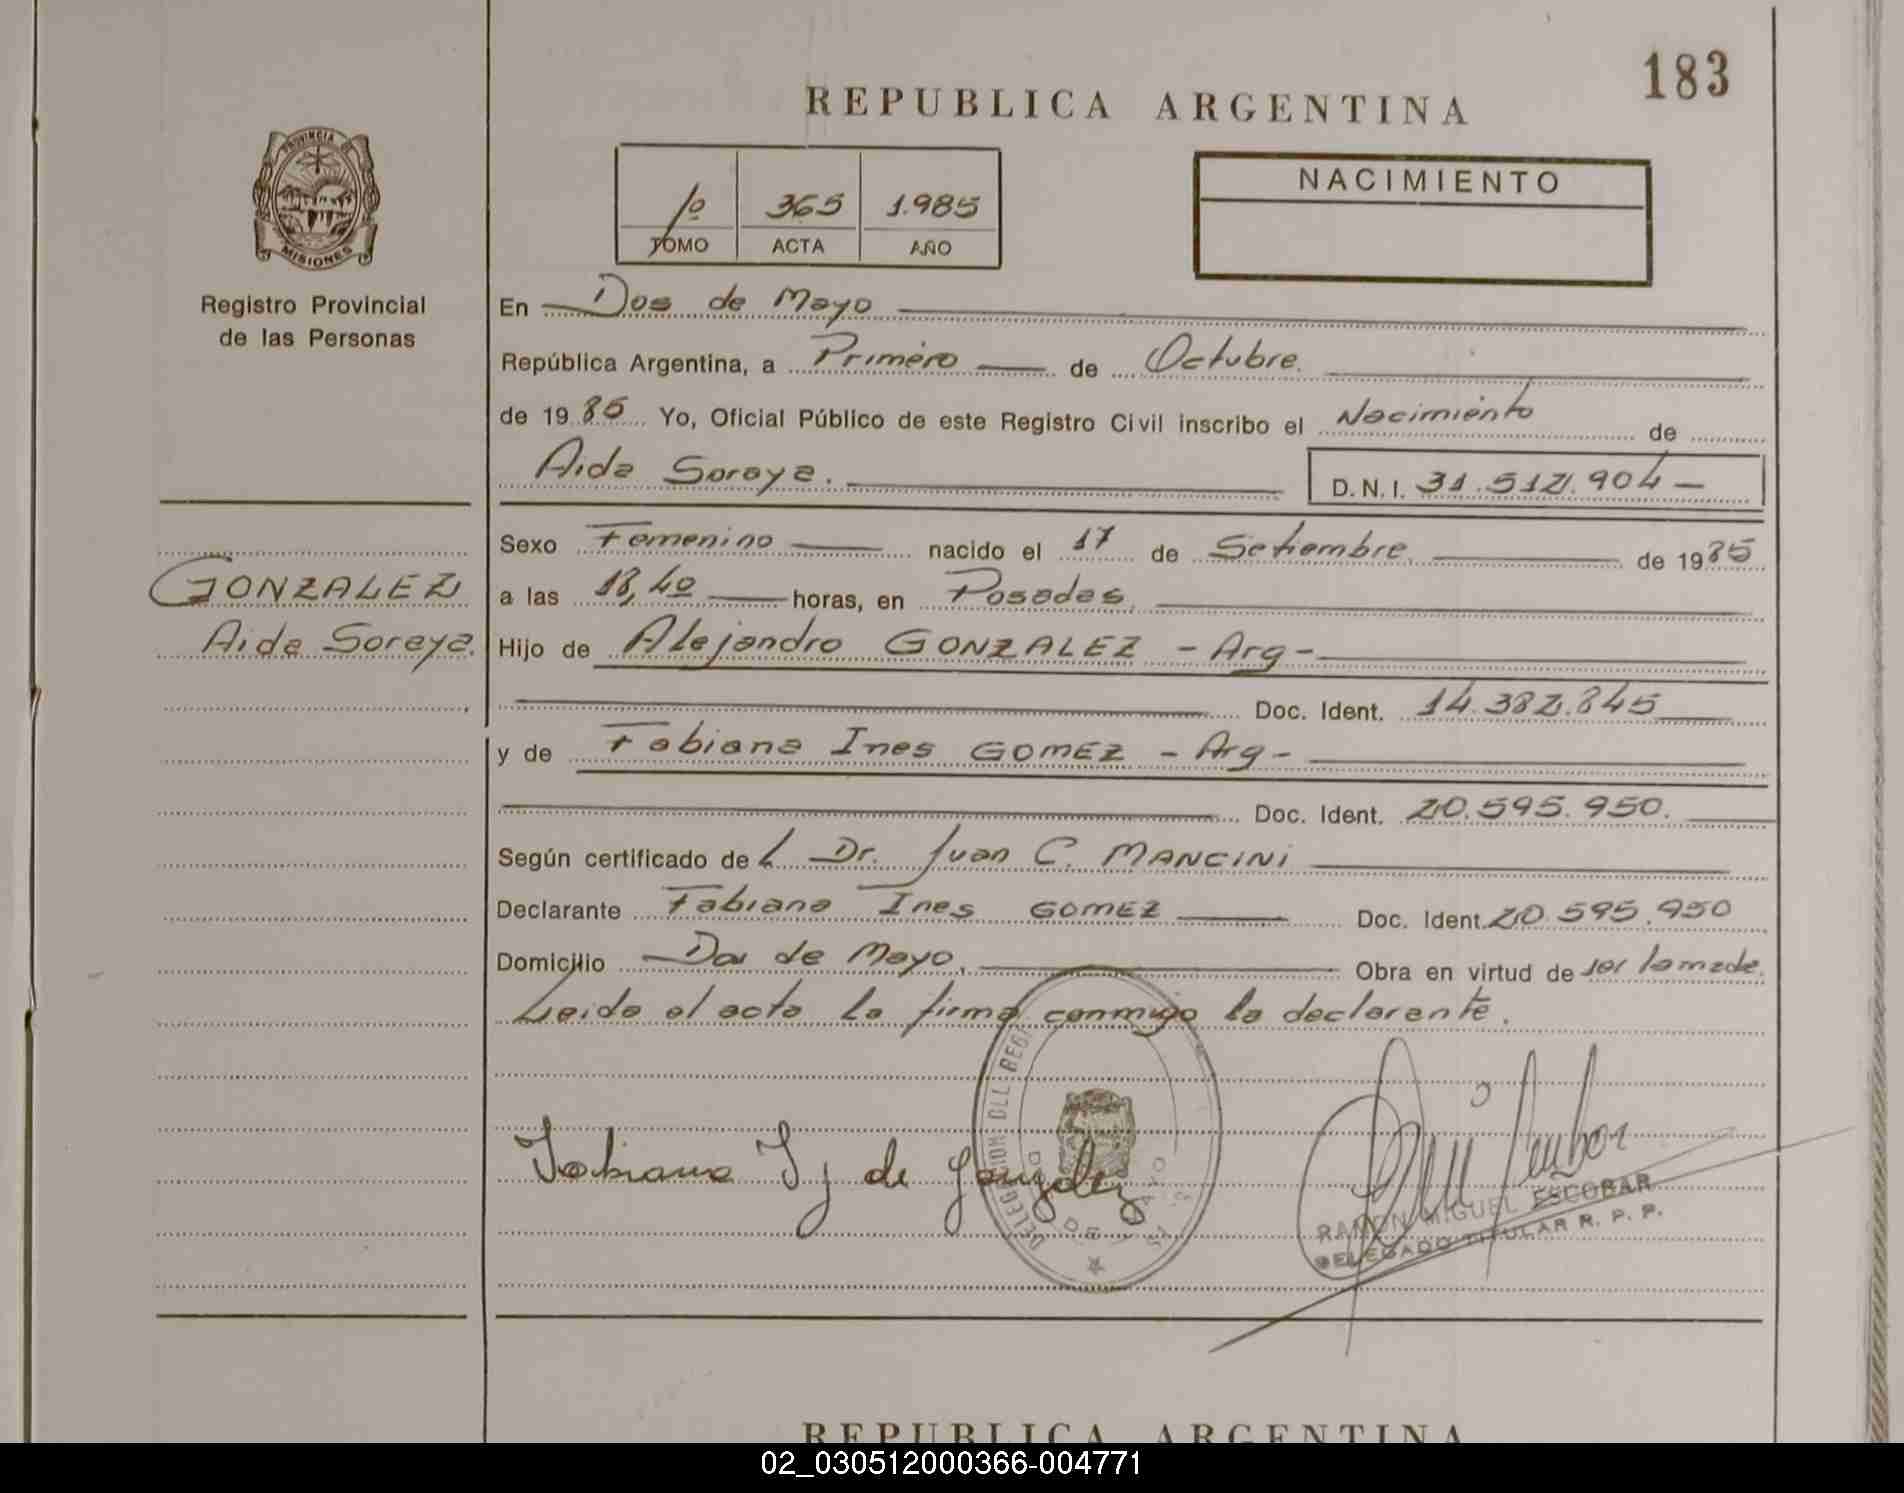 183
REPUBLICA ARGENTINA
PROVINCIA DE
MISIONES
Registro Provincial
de las Personas
1º 365 1.985
TOMO ACTA AÑO
NACIMIENTO
En Dos de Mayo
República Argentina, a Primero de Octubre.
de 19 85 Yo, Oficial Público de este Registro Civil inscribo el Nacimiento de
Aida Soraya. D.N.I. 31.512.904-
Sexo Femenino nacido el 17 de Setiembre. de 19 85
a las 18,40 horas, en Posadas.
GONZALEZ
Aida Soraya.
Hijo de Alejandro GONZALEZ - Arg-
Doc. Ident. 14.382.845
y de Fabiana Ines GOMEZ - Arg-
Doc. Ident. 20.595.950.
Según certificado del Dr. Juan C. MANCINI
Declarante Fabiana Ines GOMEZ Doc. Ident. 20.595.950
Domicilio Dos de Mayo. Obra en virtud de ser la madre.
Leida el acta la firma conmigo la declarante.
Fabiana I G de González
RAMON MIGUEL ESCOBAR
DELEGADO TITULAR R. P. P.
REPUBLICA ARGENTINA
02_030512000366-004771